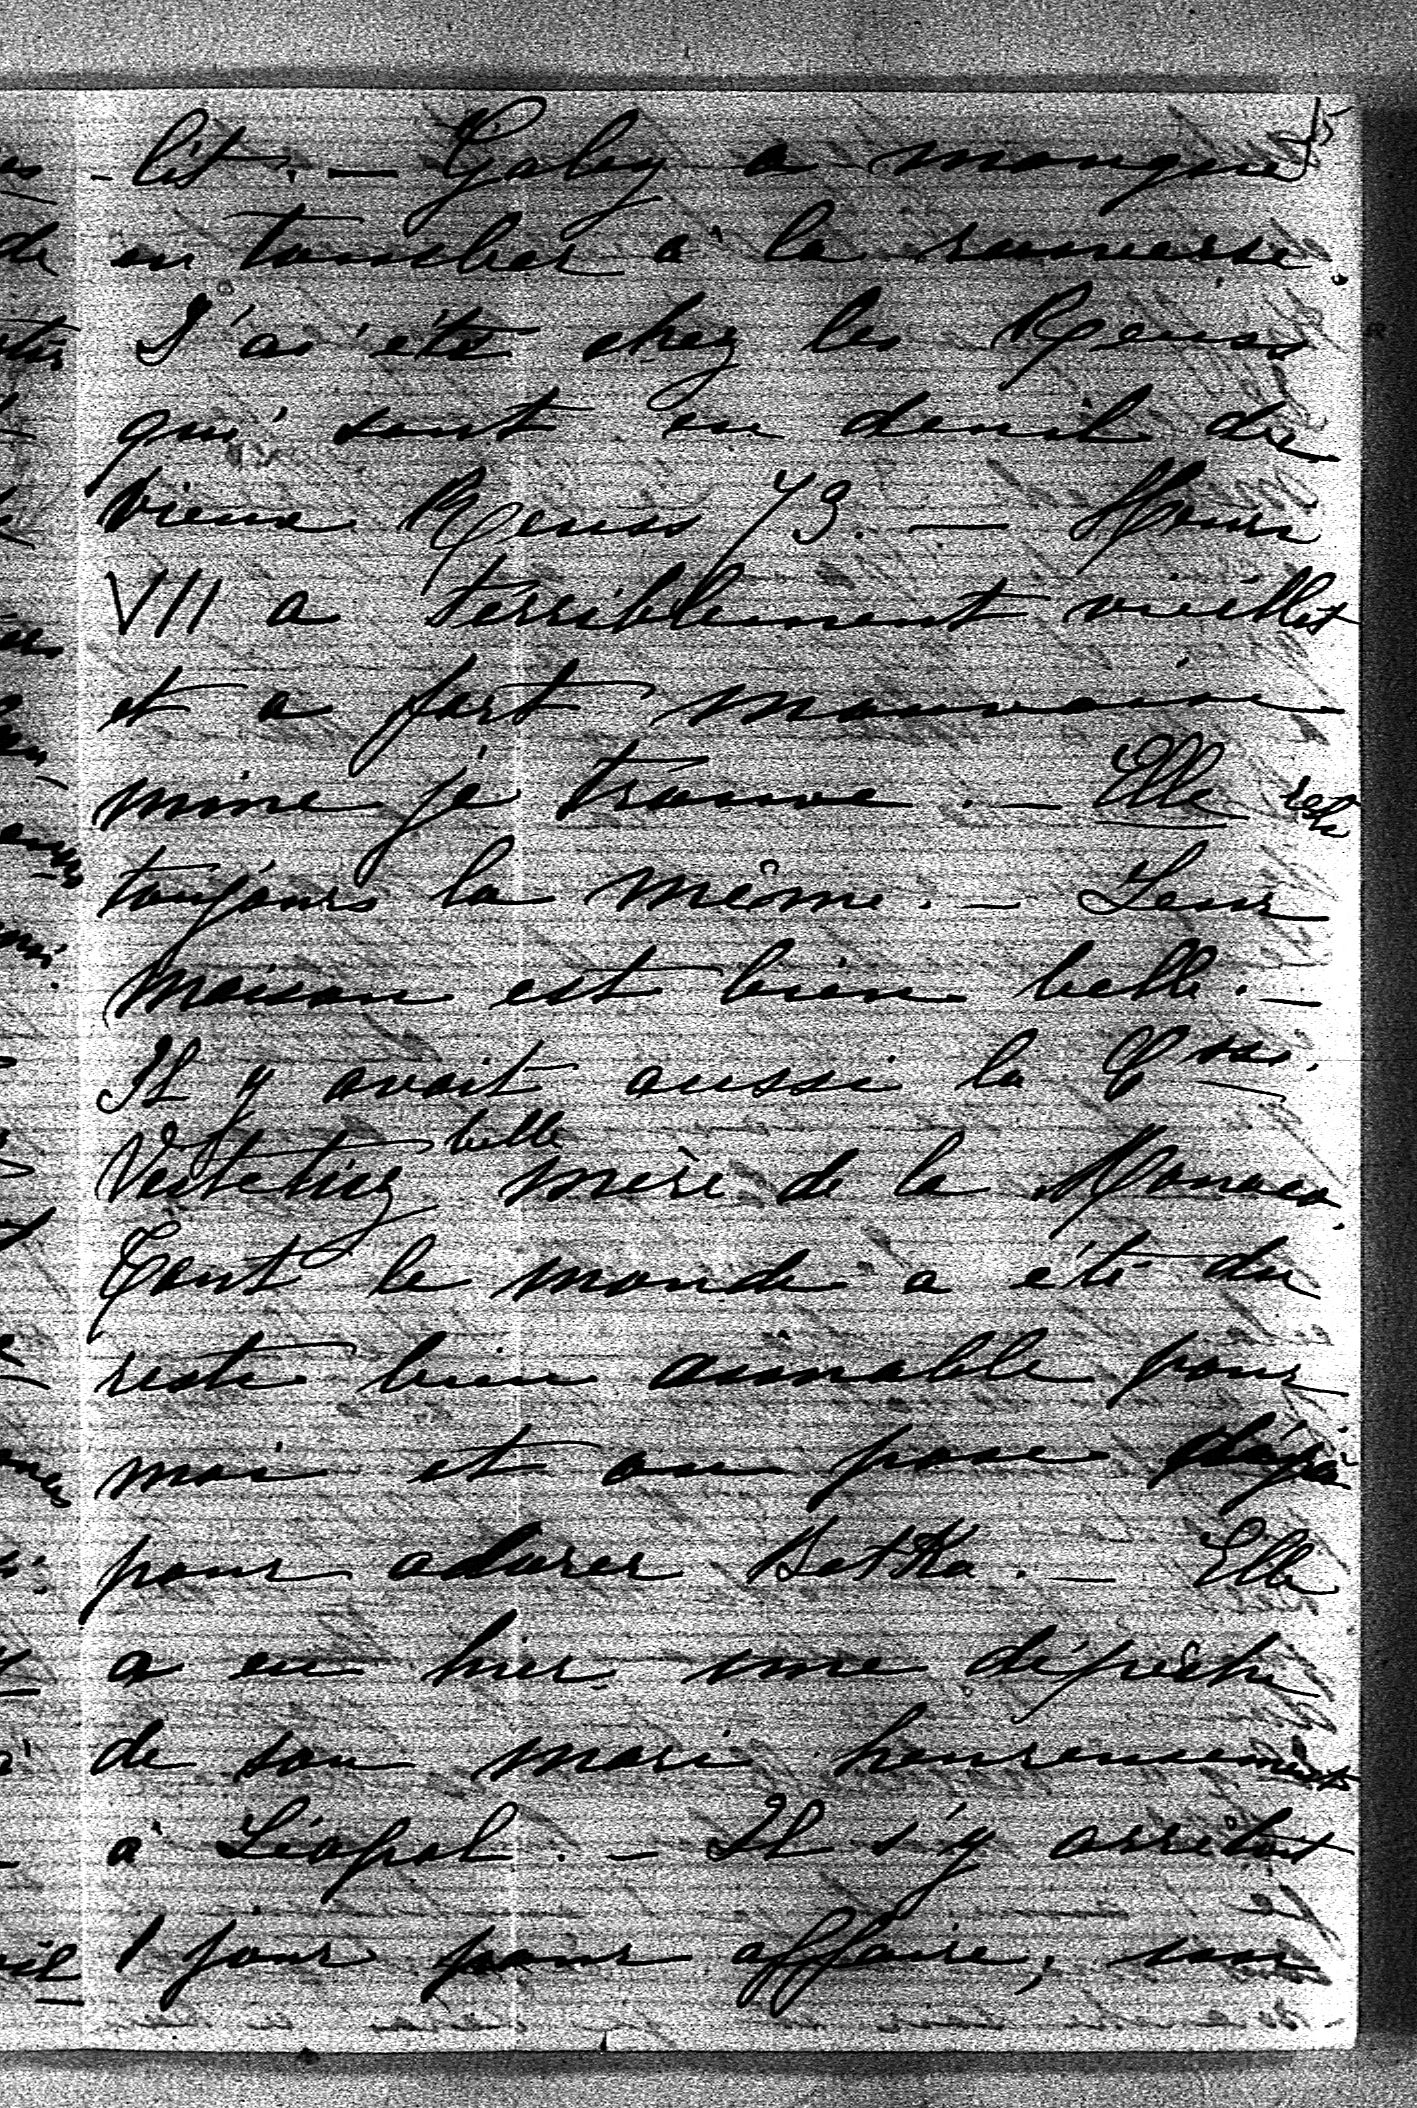 5
- lit. — Gaby a manqué
en tomber à la renverse.
J'ai été chez les Reuss
qui sont en deuil du
vieux Reuss 73. — Henri
VII a terriblement vieilli
et a fort mauvaise
mine je trouve. — Elle est
toujours la même. — Leur
maison est bien belle. —
Il y avait aussi la Psse.
Festetics belle mère de la Monaco.
Tout le monde a été du
reste bien aimable pour
moi et on pose
pour adorer Betka. — Elle
a eu hier une dépêche
de son mari heureusement
à Léopol. — Il s'y arrêtait
1 jour pour affaire, un